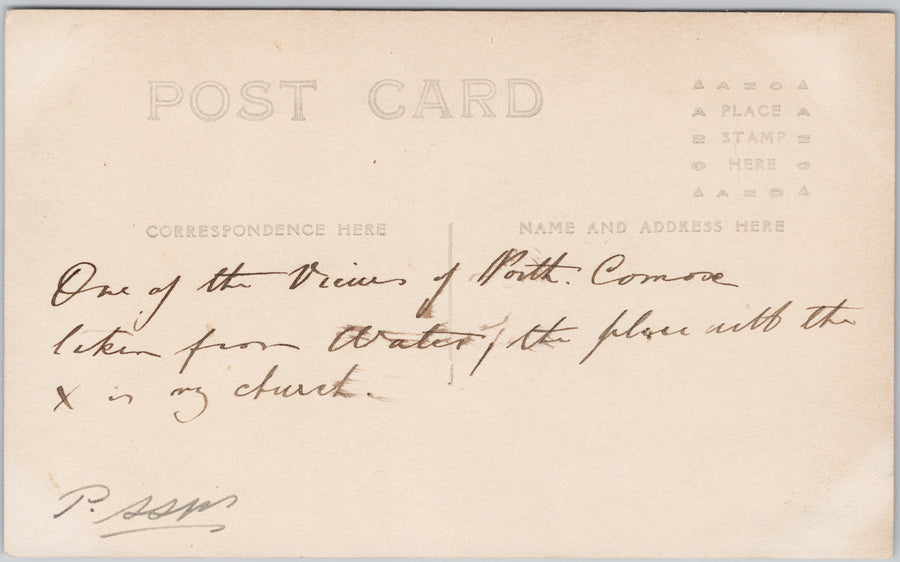 POST CARD
AZO
PLACE
STAMP
HERE
AZO
CORRESPONDENCE HERE
NAME AND ADDRESS HERE
One of the Views of Comox
taken from Water, the place with the
x is my church.
P.